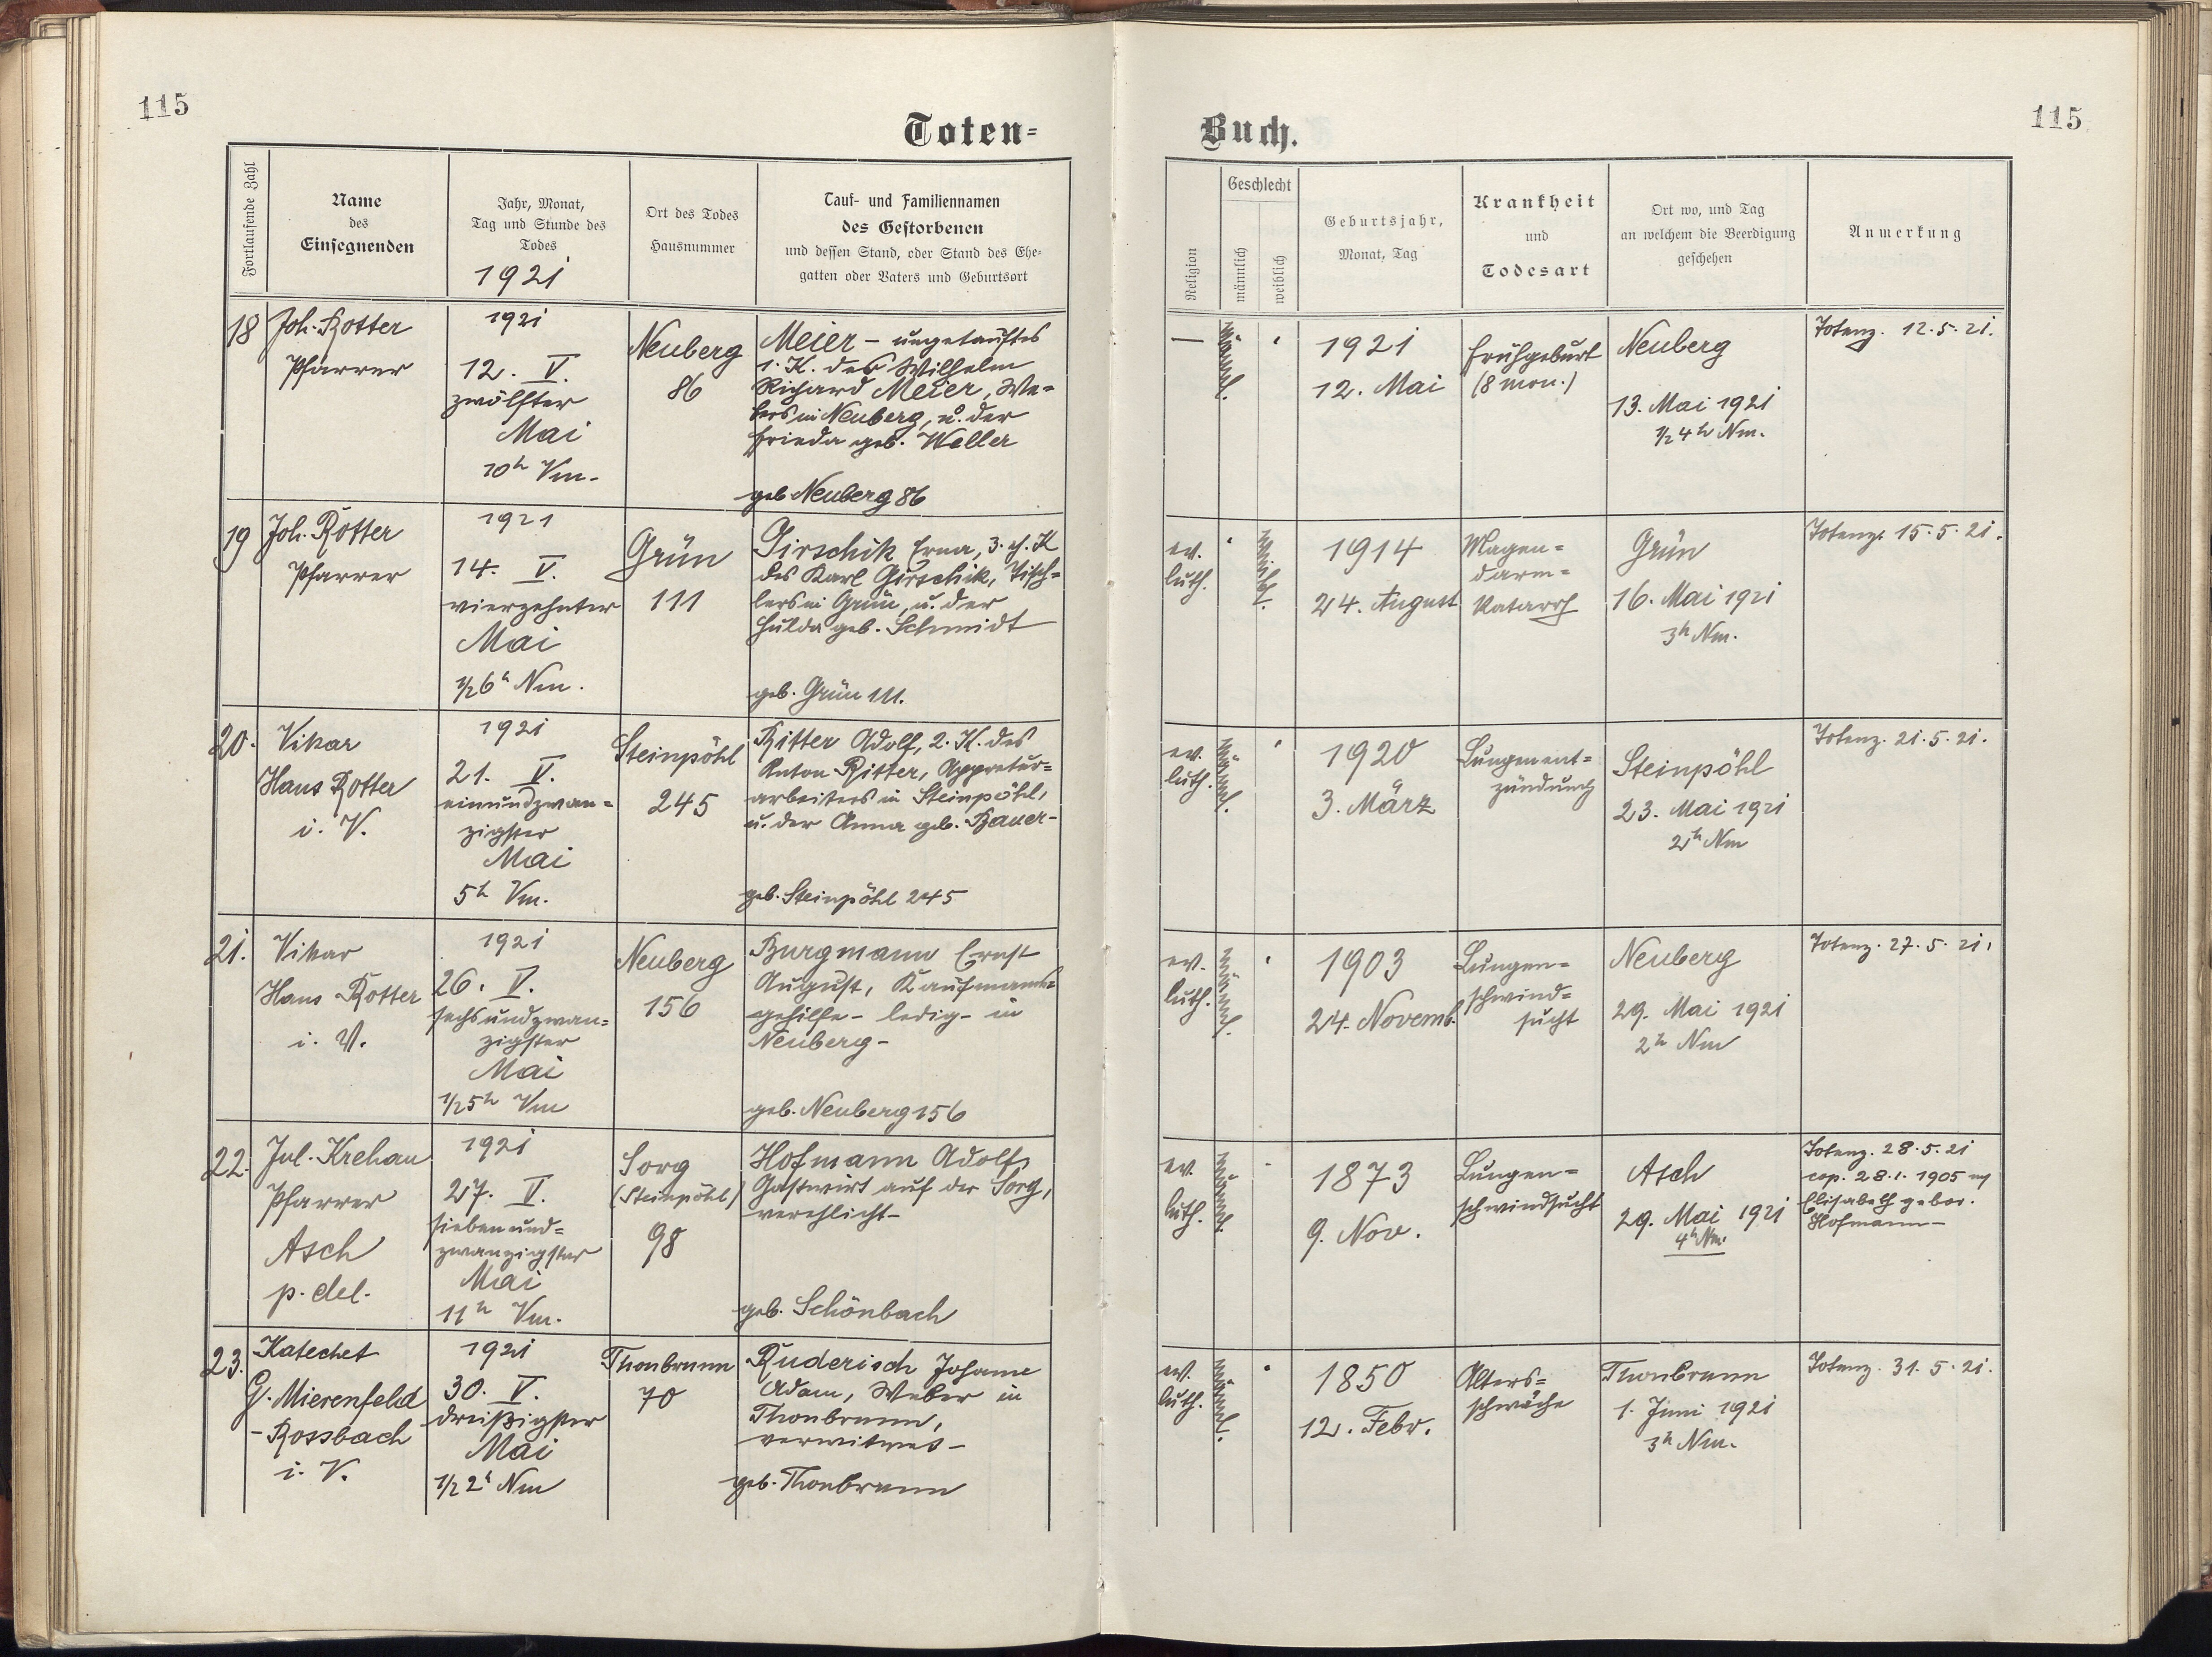 115
115
Toten=
Buch.
Fortlaufende Zahl
Name
des
Einsegnenden
Jahr, Monat,
Tag und Stunde des
Todes
1921
Ort des Todes
Hausnummer
Tauf- und Familiennamen
des Gestorbenen
und dessen Stand, oder Stand des Ehe-
gatten oder Vaters und Geburtsort
Religion
Geschlecht
männlich
weiblich
Geburtsjahr,
Monat, Tag
Krankheit
und
Todesart
Ort wo, und Tag
an welchem die Beerdigung
geschehen
Anmerkung
18
Joh. Rotter
Pfarrer
1921
12. V.
zwölfter
Mai
10h Vm.
Neuberg
86
Meier – ungetauftes
1. K. des Wilhelm
Richard Meier, We=
bers in Neuberg, u. der
Frieda geb. Weller
geb Neuberg 86
—
männl.
1921
12. Mai
Frühgeburt
(8 mon.)
Neuberg
13. Mai 1921
1/2 4h Nm.
Totenz. 12.5.21.
19
Joh. Rotter
Pfarrer
1921
14. V.
vierzehnter
Mai
1/2 6h Nm.
Grün
111
Girschik Erna, 3. eh. K
des Karl Girschik, Tisch=
lers in Grün, u. der
Hulda geb. Schmidt
geb. Grün 111.
ev.
luth.
weibl.
1914
24. August
Magen=
darm=
Katarrh
Grün
16. Mai 1921
3h Nm.
Totenz. 15.5.21.
20.
Vikar
Hans Rotter
i. V.
1921
21. V.
einundzwan=
zigster
Mai
5h Vm.
Steinpöhl
245
Ritter Adolf, 2. K. des
Anton Ritter, Appretur=
arbeiters in Steinpöhl,
u. der Anna geb. Bauer–
geb. Steinpöhl 245
ev.
luth.
männl.
1920
3. März
Lungenent=
zündung
Steinpöhl
23. Mai 1921
2h Nm
Totenz. 21.5.21.
21.
Vikar
Hans Rotter
i. V.
1921
26. V.
sechsundzwan=
zigster
Mai
1/2 5h Vm
Neuberg
156
Burgmann Ernst
August, Kaufmanns=
gehilfe – ledig – in
Neuberg –
geb. Neuberg 156
ev.
luth.
männl.
1903
24. Novemb.
Lungen=
schwind=
sucht
Neuberg
29. Mai 1921
2h Nm
Totenz. 27.5.21.
22.
Jul. Krehan
Pfarrer
Asch
p. del.
1921
27. V.
siebenund=
zwanzigster
Mai
11h Vm.
Sorg
(Steinpöhl)
98
Hofmann Adolf,
Gastwirt auf der Sorg,
verehlicht–
geb. Schönbach
ev.
luth.
männl.
1873
9. Nov.
Lungen=
schwindsucht
Asch
29. Mai 1921
4h Nm.
Totenz. 28.5.21
cop. 28.1.1905 m
Elisabeth gebor.
Hofmann–
23.
Katechet
G. Mierenfeld
– Rossbach
i. V.
1921
30. V.
dreißigster
Mai
1/2 2h Nm
Thonbrunn
70
Ruderisch Johann
Adam, Weber in
Thonbrunn,
verwitwet –
geb. Thonbrunn
ev.
luth.
männl.
1850
12. Febr.
Alters=
schwäche
Thonbrunn
1. Juni 1921
3h Nm.
Totenz. 31.5.21.